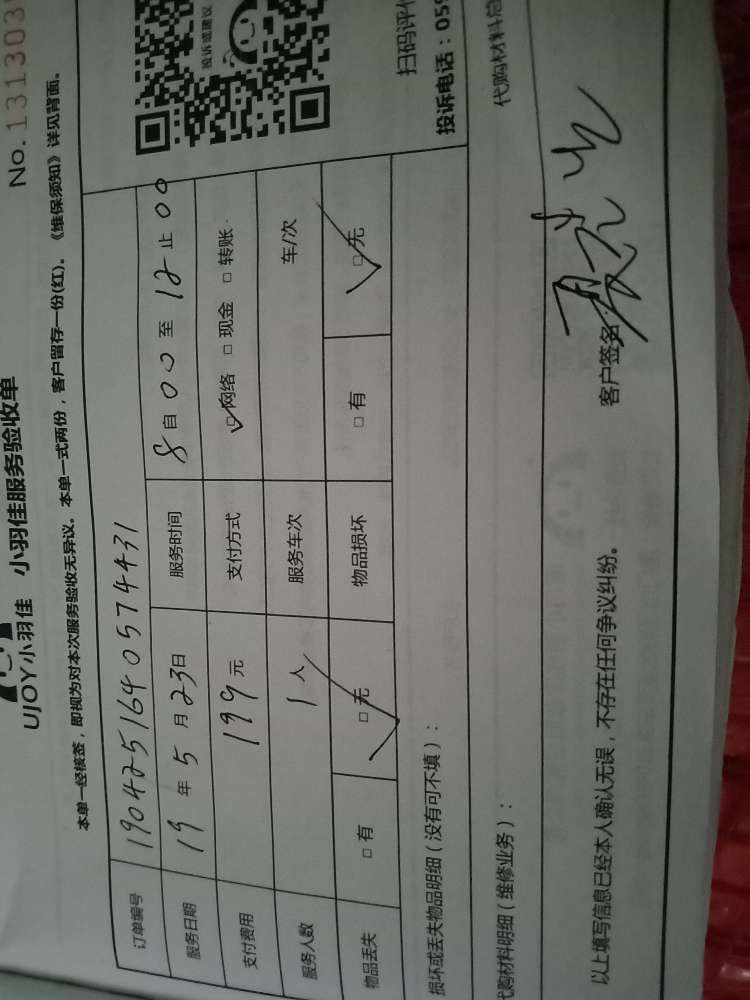 No.131303
UJOY小羽佳 小羽佳服务验收单
本单一经核签，即视为对本次服务验收无异议。本单一式两份，客户留存一份(红)。《维保须知》详见背面。
订单编号 1904251640574431
服务日期 19年5月23日 服务时间 8自00至12止00
支付费用 199元 支付方式 网络 □现金 □转账
服务人数 1人 服务车次 车/次
物品丢失 □有 □无 物品损坏 □有 □无
投诉或建议
扫码评
投诉电话：059
损坏或丢失物品明细（没有可不填）：
代购材料明细（维修业务）：
代购材料
以上填写信息已经本人确认无误，不存在任何争议纠纷。
客户签名